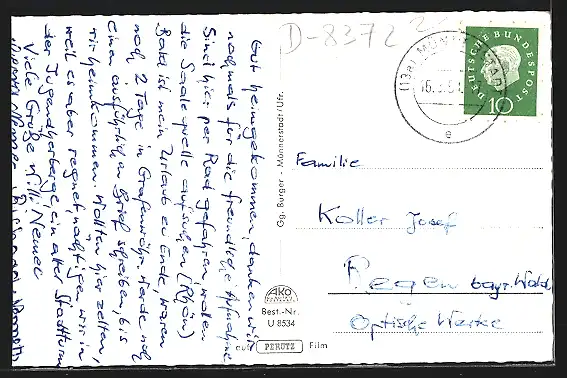 Gut heimgekommen, danken wir
nochmals für die freundliche Aufnahme
Sind hier per Rad gefahren, wollen
die Saalequelle aufsuchen (Rhön)
Bald ist mein Urlaub zu Ende, waren
noch 2 Tage in Grafenwöhr. Werde noch
einen ausführlichen Brief schreiben, bis
wir heimkommen. Wollten hier zelten,
weil es aber regnet, nächtigen wir in
der Jugendherberge, ein alter Stadtturm
Viele Grüße Willi Nemec
D-8372
DEUTSCHE BUNDESPOST
10
(13a)
e
Gg. Burger · Münnerstadt/Ufr.
Familie
Koller Josef
Regen bayr. Wald,
Optische Werke
AKO
Best.-Nr.
U 8534
auf PERUTZ Film